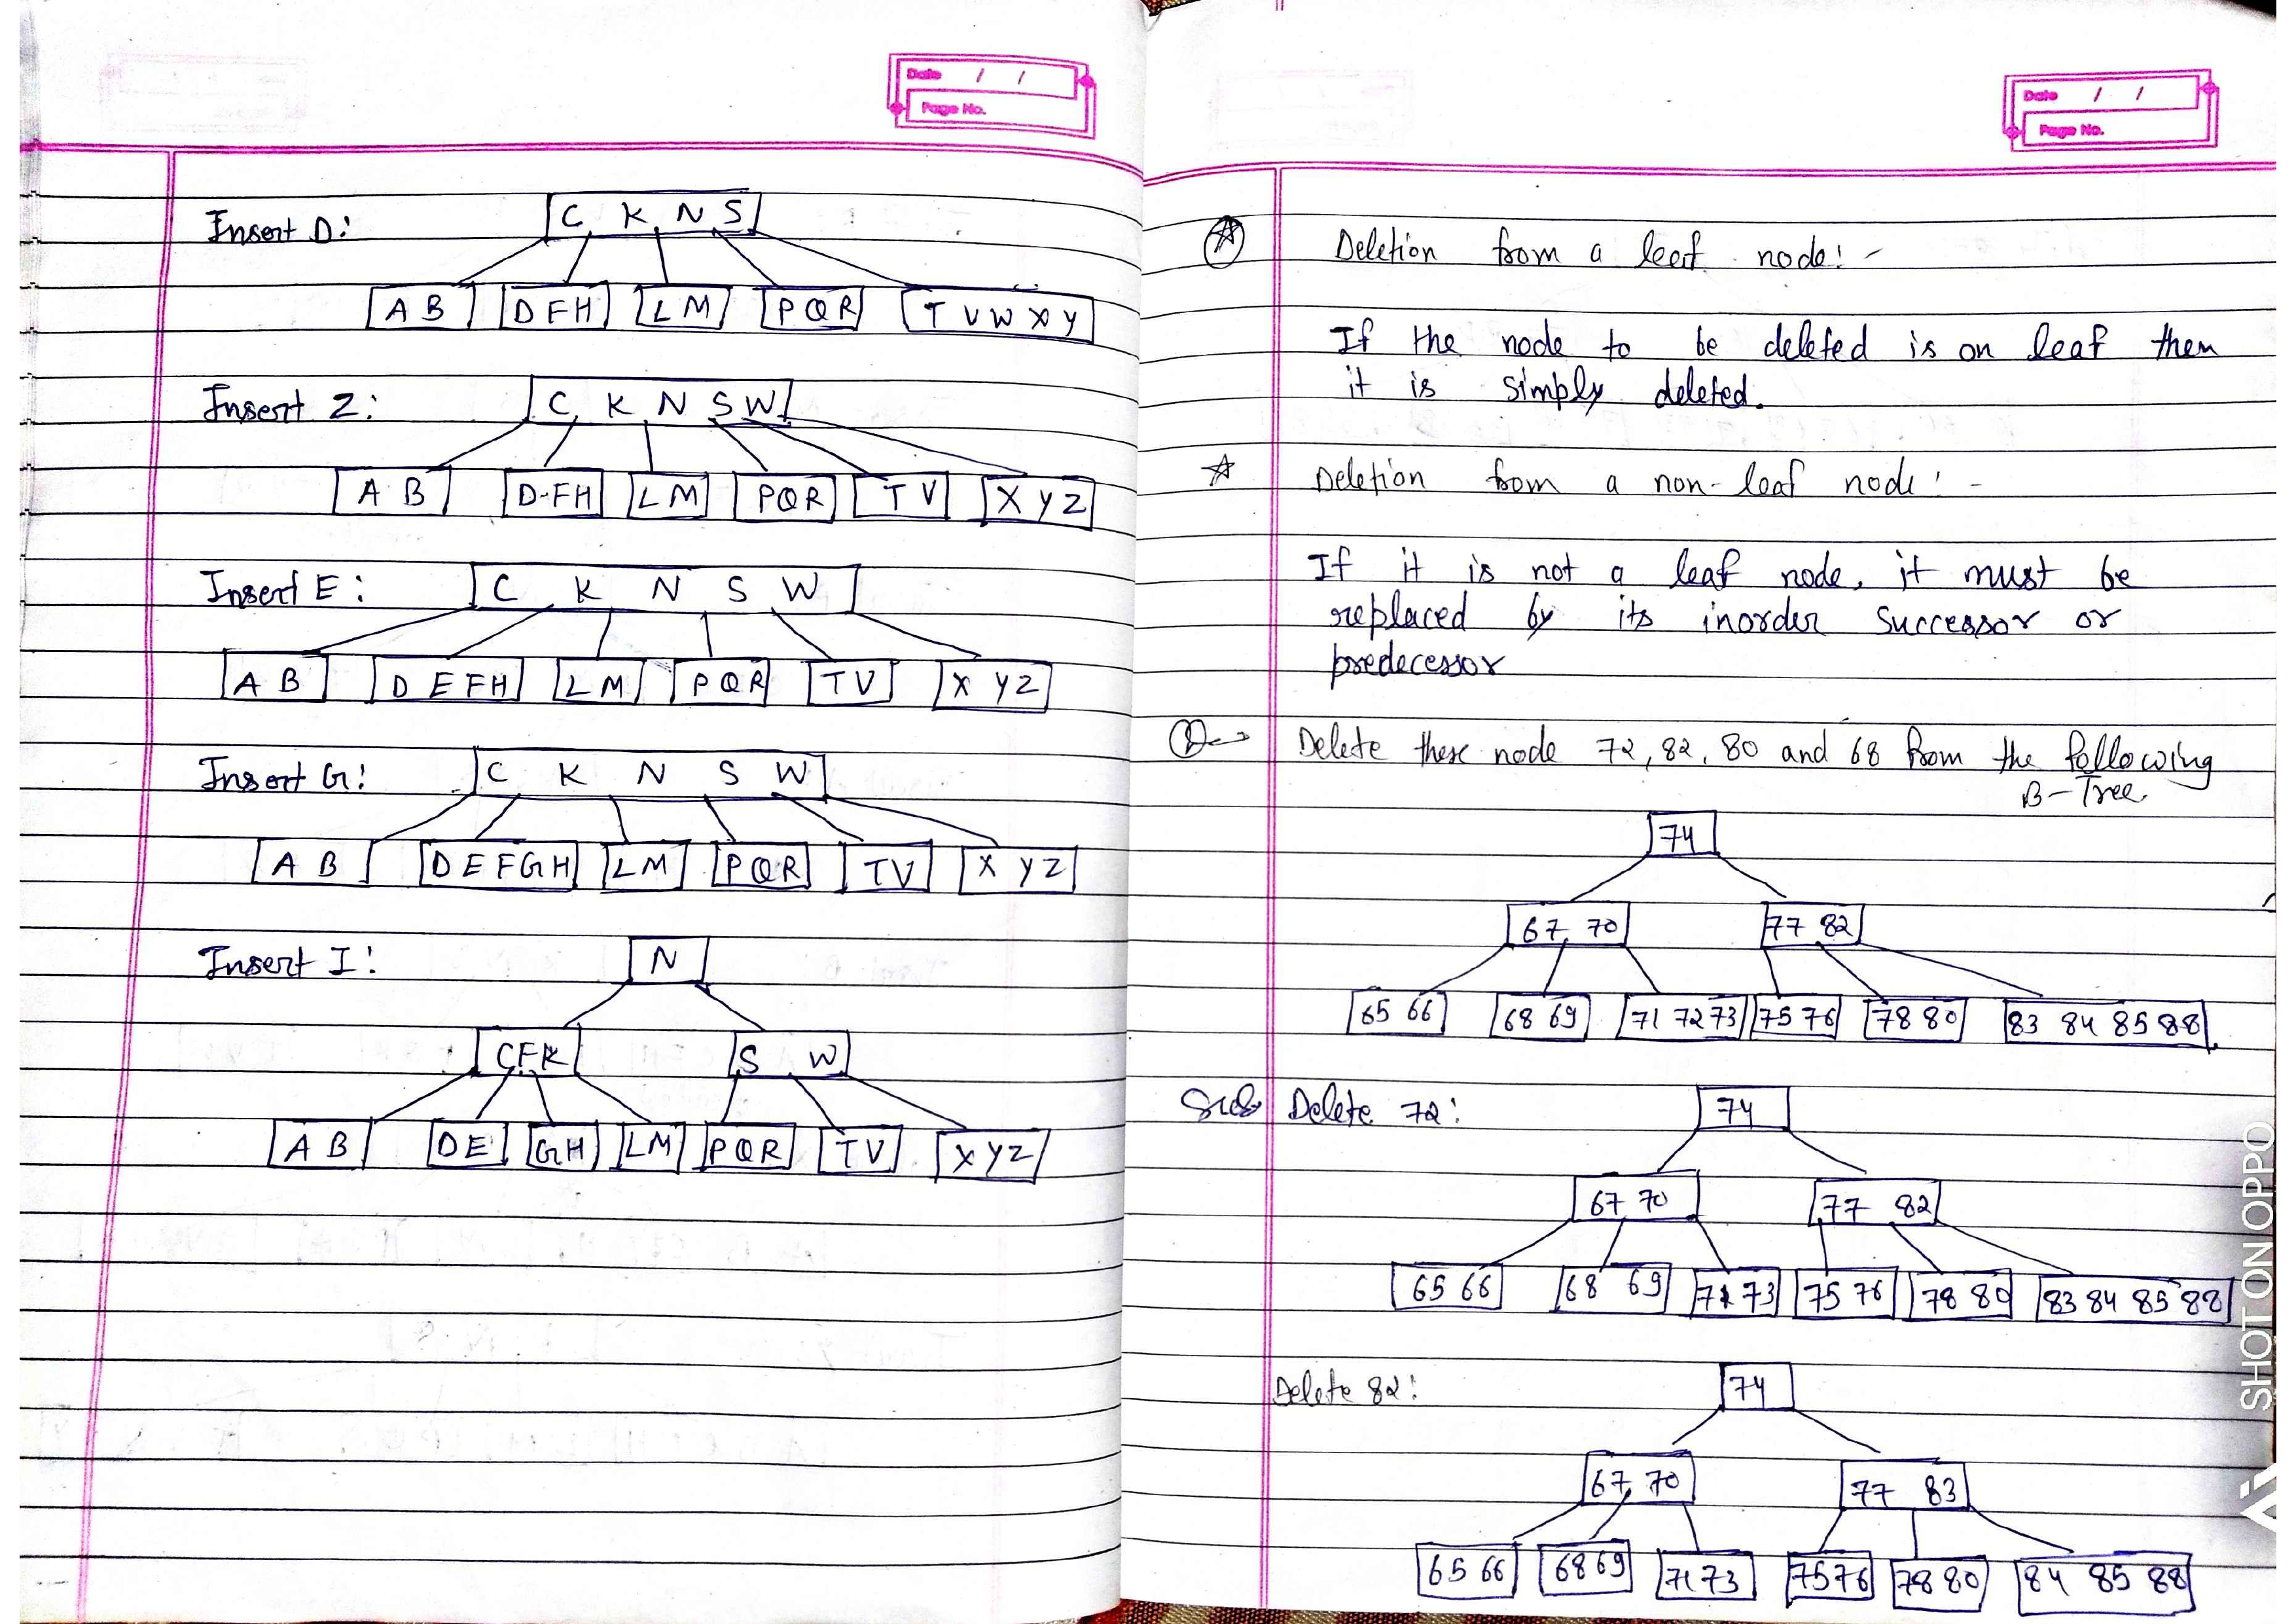 Date / /
Page No.
Insert D:
C K N S
A B D F H L M P Q R T V W X Y
Insert Z:
C K N S W
A B D-FH L M P Q R T V X Y Z
Insert E:
C K N S W
A B D E F H L M P Q R T V X Y Z
Insert G:
C K N S W
A B D E F G H L M P Q R T V X Y Z
Insert I:
N
C F K S W
A B D E G H L M P Q R T V X Y Z
Date / /
Page No.
Deletion from a leaf node:-
If the node to be deleted is on leaf then
it is simply deleted.
Deletion from a non-leaf node:-
If it is not a leaf node, it must be
replaced by its inorder successor or
predecessor
Delete these node 72, 82, 80 and 68 from the following
B-Tree
74
67 70 77 82
65 66 68 69 71 72 73 75 76 78 80 83 84 85 88
Delete 72:
74
67 70 77 82
65 66 68 69 71 73 75 76 78 80 83 84 85 88
Delete 82:
74
67 70 77 83
65 66 68 69 71 73 75 76 78 80 84 85 88
SHOT ON OPPO